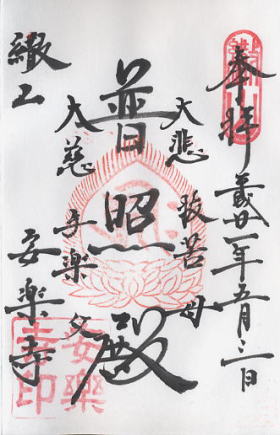 奉拝 平成廿一年五月三日
大悲 抜苦 母
普照殿
大慈 与楽 父
繖山 安楽寺
安樂
寺印